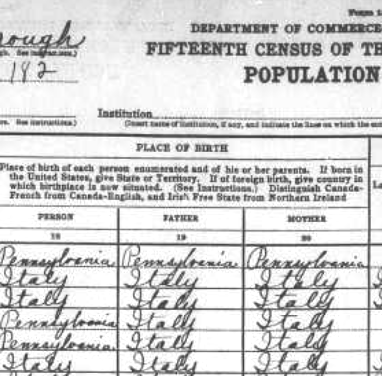 Form 1
DEPARTMENT OF COMMERCE
rough
FIFTEENTH CENSUS OF TH
182
POPULATION
Institution
(Insert name of institution, if any, and indicate the lines on which the ent
PLACE OF BIRTH
Place of birth of each person enumerated and of his or her parents. If born in
the United States, give State or Territory. If of foreign birth, give country in
which birthplace is now situated. (See Instructions.) Distinguish Canada-
French from Canada-English, and Irish Free State from Northern Ireland
PERSON FATHER MOTHER
18 19 20
Pennsylvania Pennsylvania Pennsylvania
Italy Italy Italy
Italy Italy Italy
Pennsylvania Italy Italy
Pennsylvania Italy Italy
Italy Italy Italy